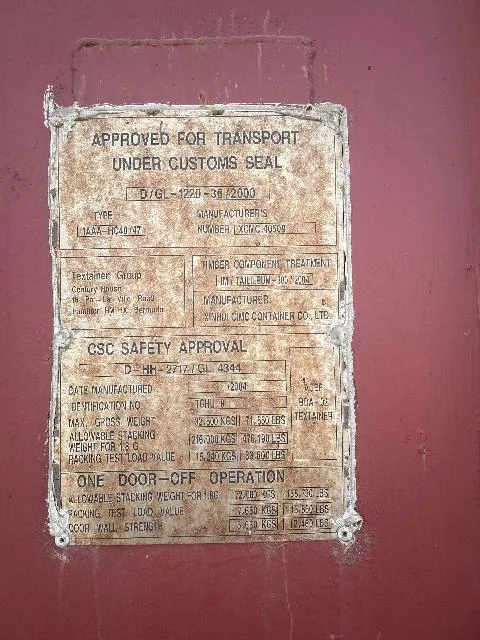 APPROVED FOR TRANSPORT
UNDER CUSTOMS SEAL
D/GL-1220-36/2000
TYPE
1AAA-HC40/47
MANUFACTURER'S
NUMBER XCMC 40509
Textainer Group
Century House
16 Par-La-Ville Road
Hamilton HM HX, Bermuda
TIMBER COMPONENT TREATMENT
IM / TAILILEUM- / 2004
MANUFACTURER:
XINHUI CIMC CONTAINER CO., LTD.
CSC SAFETY APPROVAL
D-HH-2717/GL 4344
DATE MANUFACTURED /2004
IDENTIFICATION NO. TGHU
MAX. GROSS WEIGHT 32.500 KGS 71.650 LBS
ALLOWABLE STACKING
WEIGHT FOR 1.8 G 216.000 KGS 476.190 LBS
RACKING TEST LOAD VALUE 15.240 KGS 33.600 LBS
ACEP
BDA-
TEXTAINER
ONE DOOR-OFF OPERATION
ALLOWABLE STACKING WEIGHT FOR 1.8G 72.000 KGS LBS
RACKING TEST LOAD VALUE KGS LBS
DOOR WALL STRENGTH KGS LBS